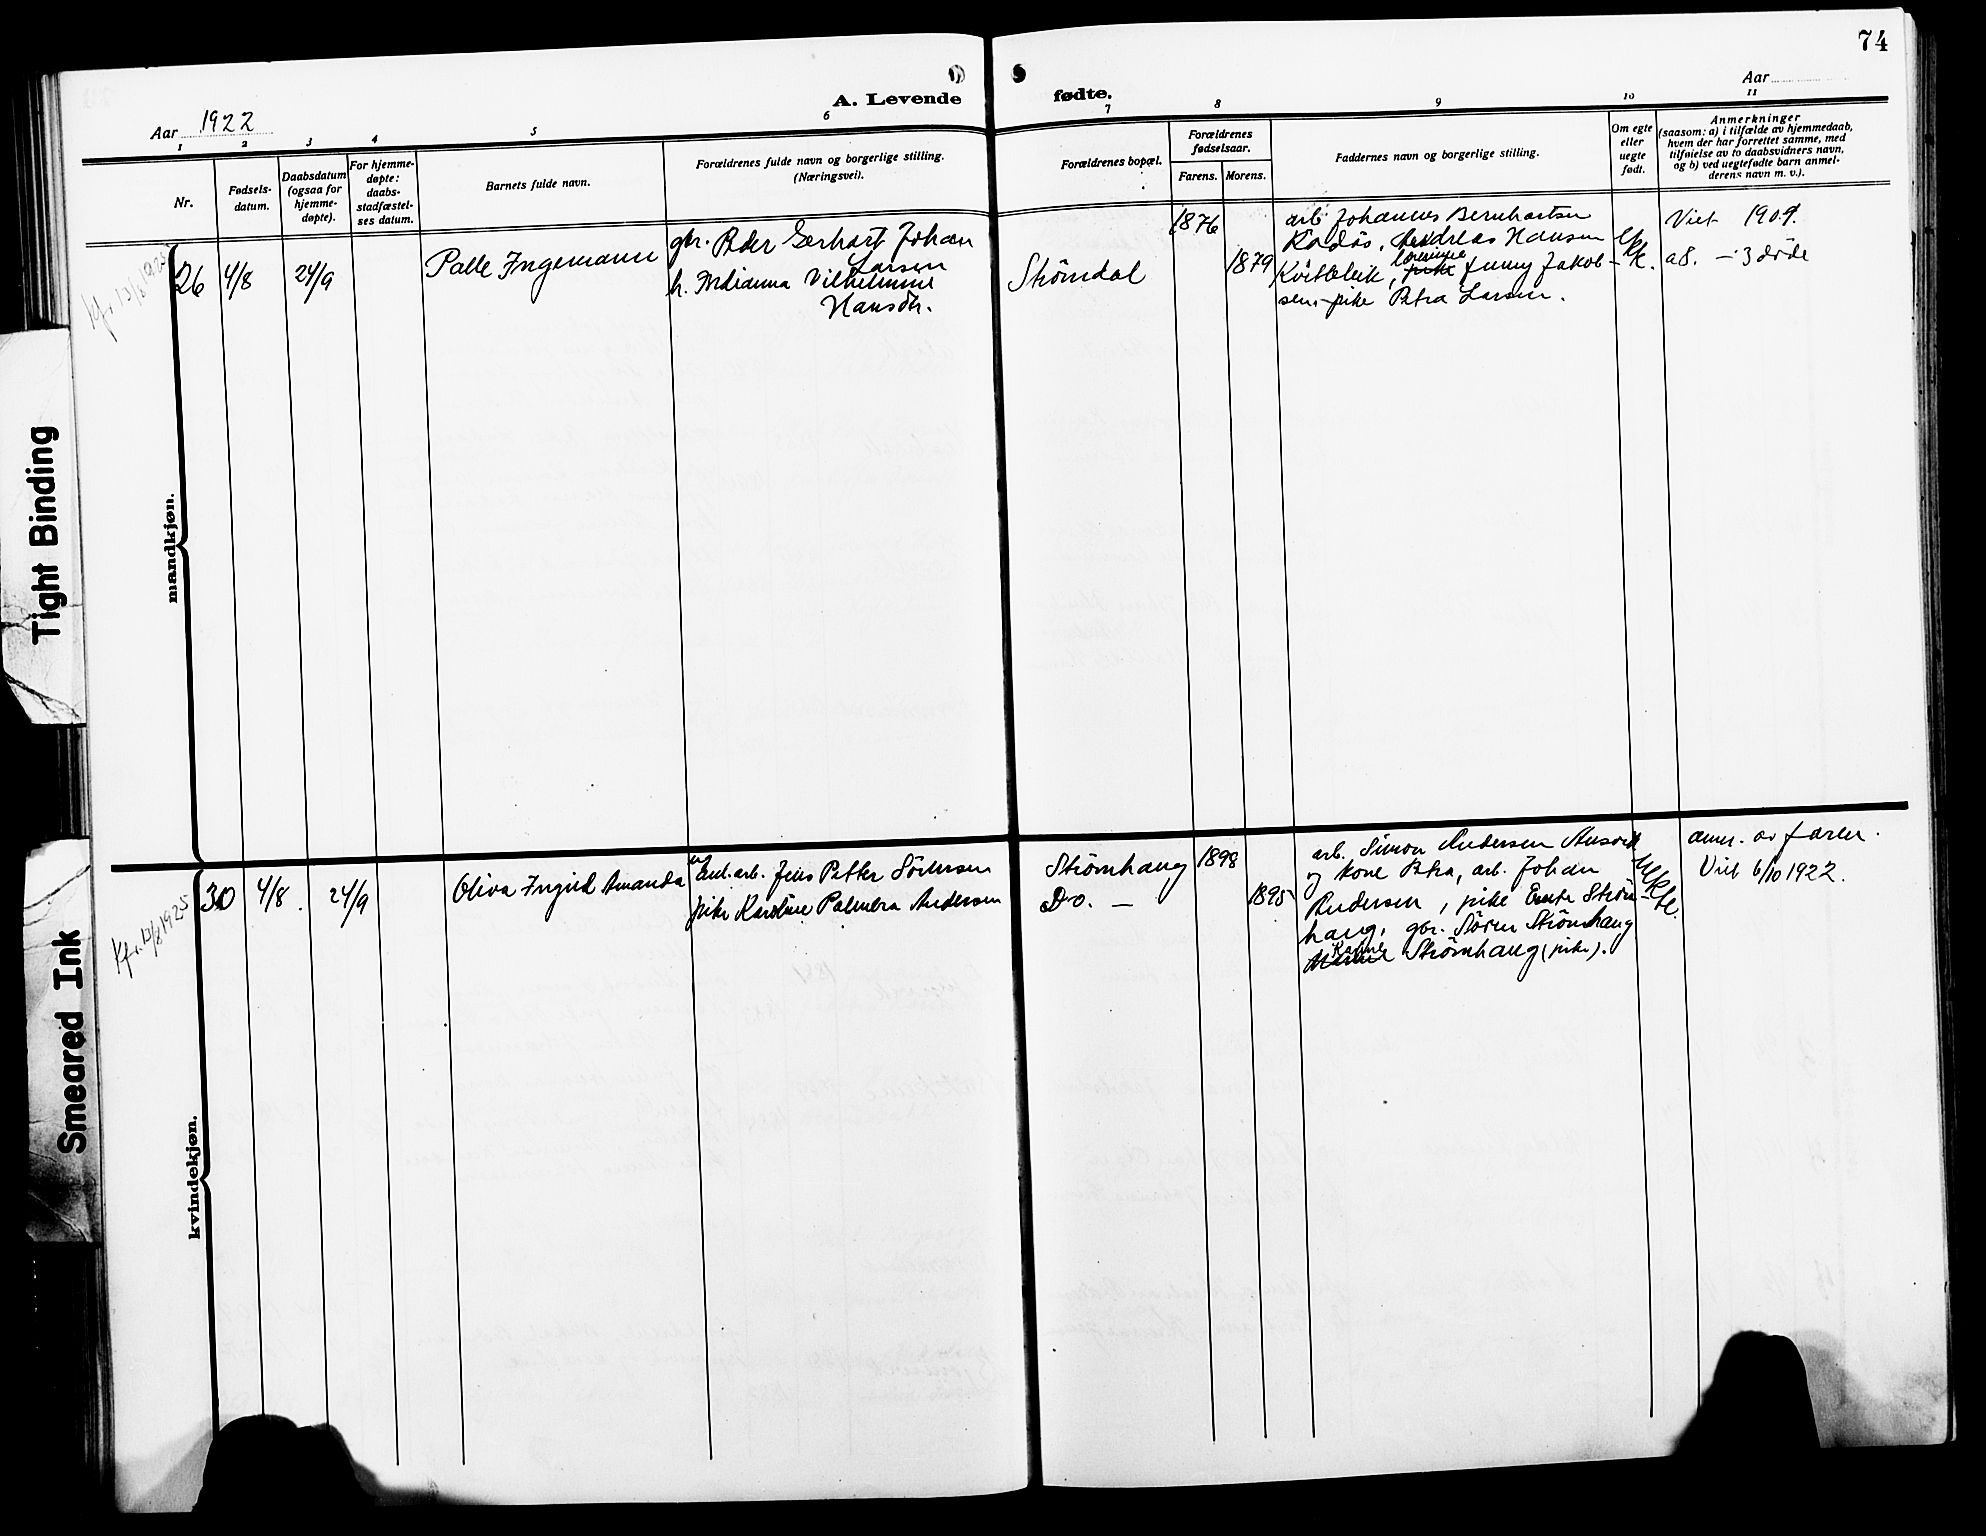 74
Aar 1922
A. Levende
fødte.
Aar
1 2 3 4 5 6 7 8 9 10 11
Nr.
Fødsels-
datum.
Daabsdatum
(ogsaa for
hjemme-
døpte).
For hjemme-
døpte:
daabs-
stadfæstel-
ses datum.
Barnets fulde navn.
Forældrenes fulde navn og borgerlige stilling.
(Næringsvei).
Forældrenes bopæl.
Forældrenes
fødselsaar.
Farens. Morens.
Faddernes navn og borgerlige stilling.
Om egte
eller
uegte
født.
Anmerkninger
(saasom: a) i tilfælde av hjemmedaab,
hvem der har forrettet samme, med
tilføielse av to daabsvidners navn,
og b) ved uegtefødte barn anmel-
derens navn m. v.).
mandkjøn.
Kfr. 13/8 1925
26 4/8 24/9
Palle Ingemann
gbr. Peder Gerhart Johan
Larsen
h. Indianna Vilhelmine
Hansdtr.
Strömdal
1876
1879
arb. Johannes Bernhartsen
Andreas Hansen
Jenny Jakob-
sen, pike Petra Larsen.
Viet 1909.
a8. – 3 døde
kvindekjøn.
Kfr. 13/8 1925
30 4/8 24/9
Oliva Ingrid Amanda
Ent. arb. Jens Petter Sörensen
pike Karoline Palmera Andersen
Strömhaug
Do. —
1898
1895
arb. Simon Andersen Ausvik
og kone Petra, arb. Johan
Andersen, pike Ström-
haug, gbr. Sören Strömhaug
Strömhaug (pike).
anm. av faren.
Viet 6/10 1922.
Tight Binding
Smeared Ink